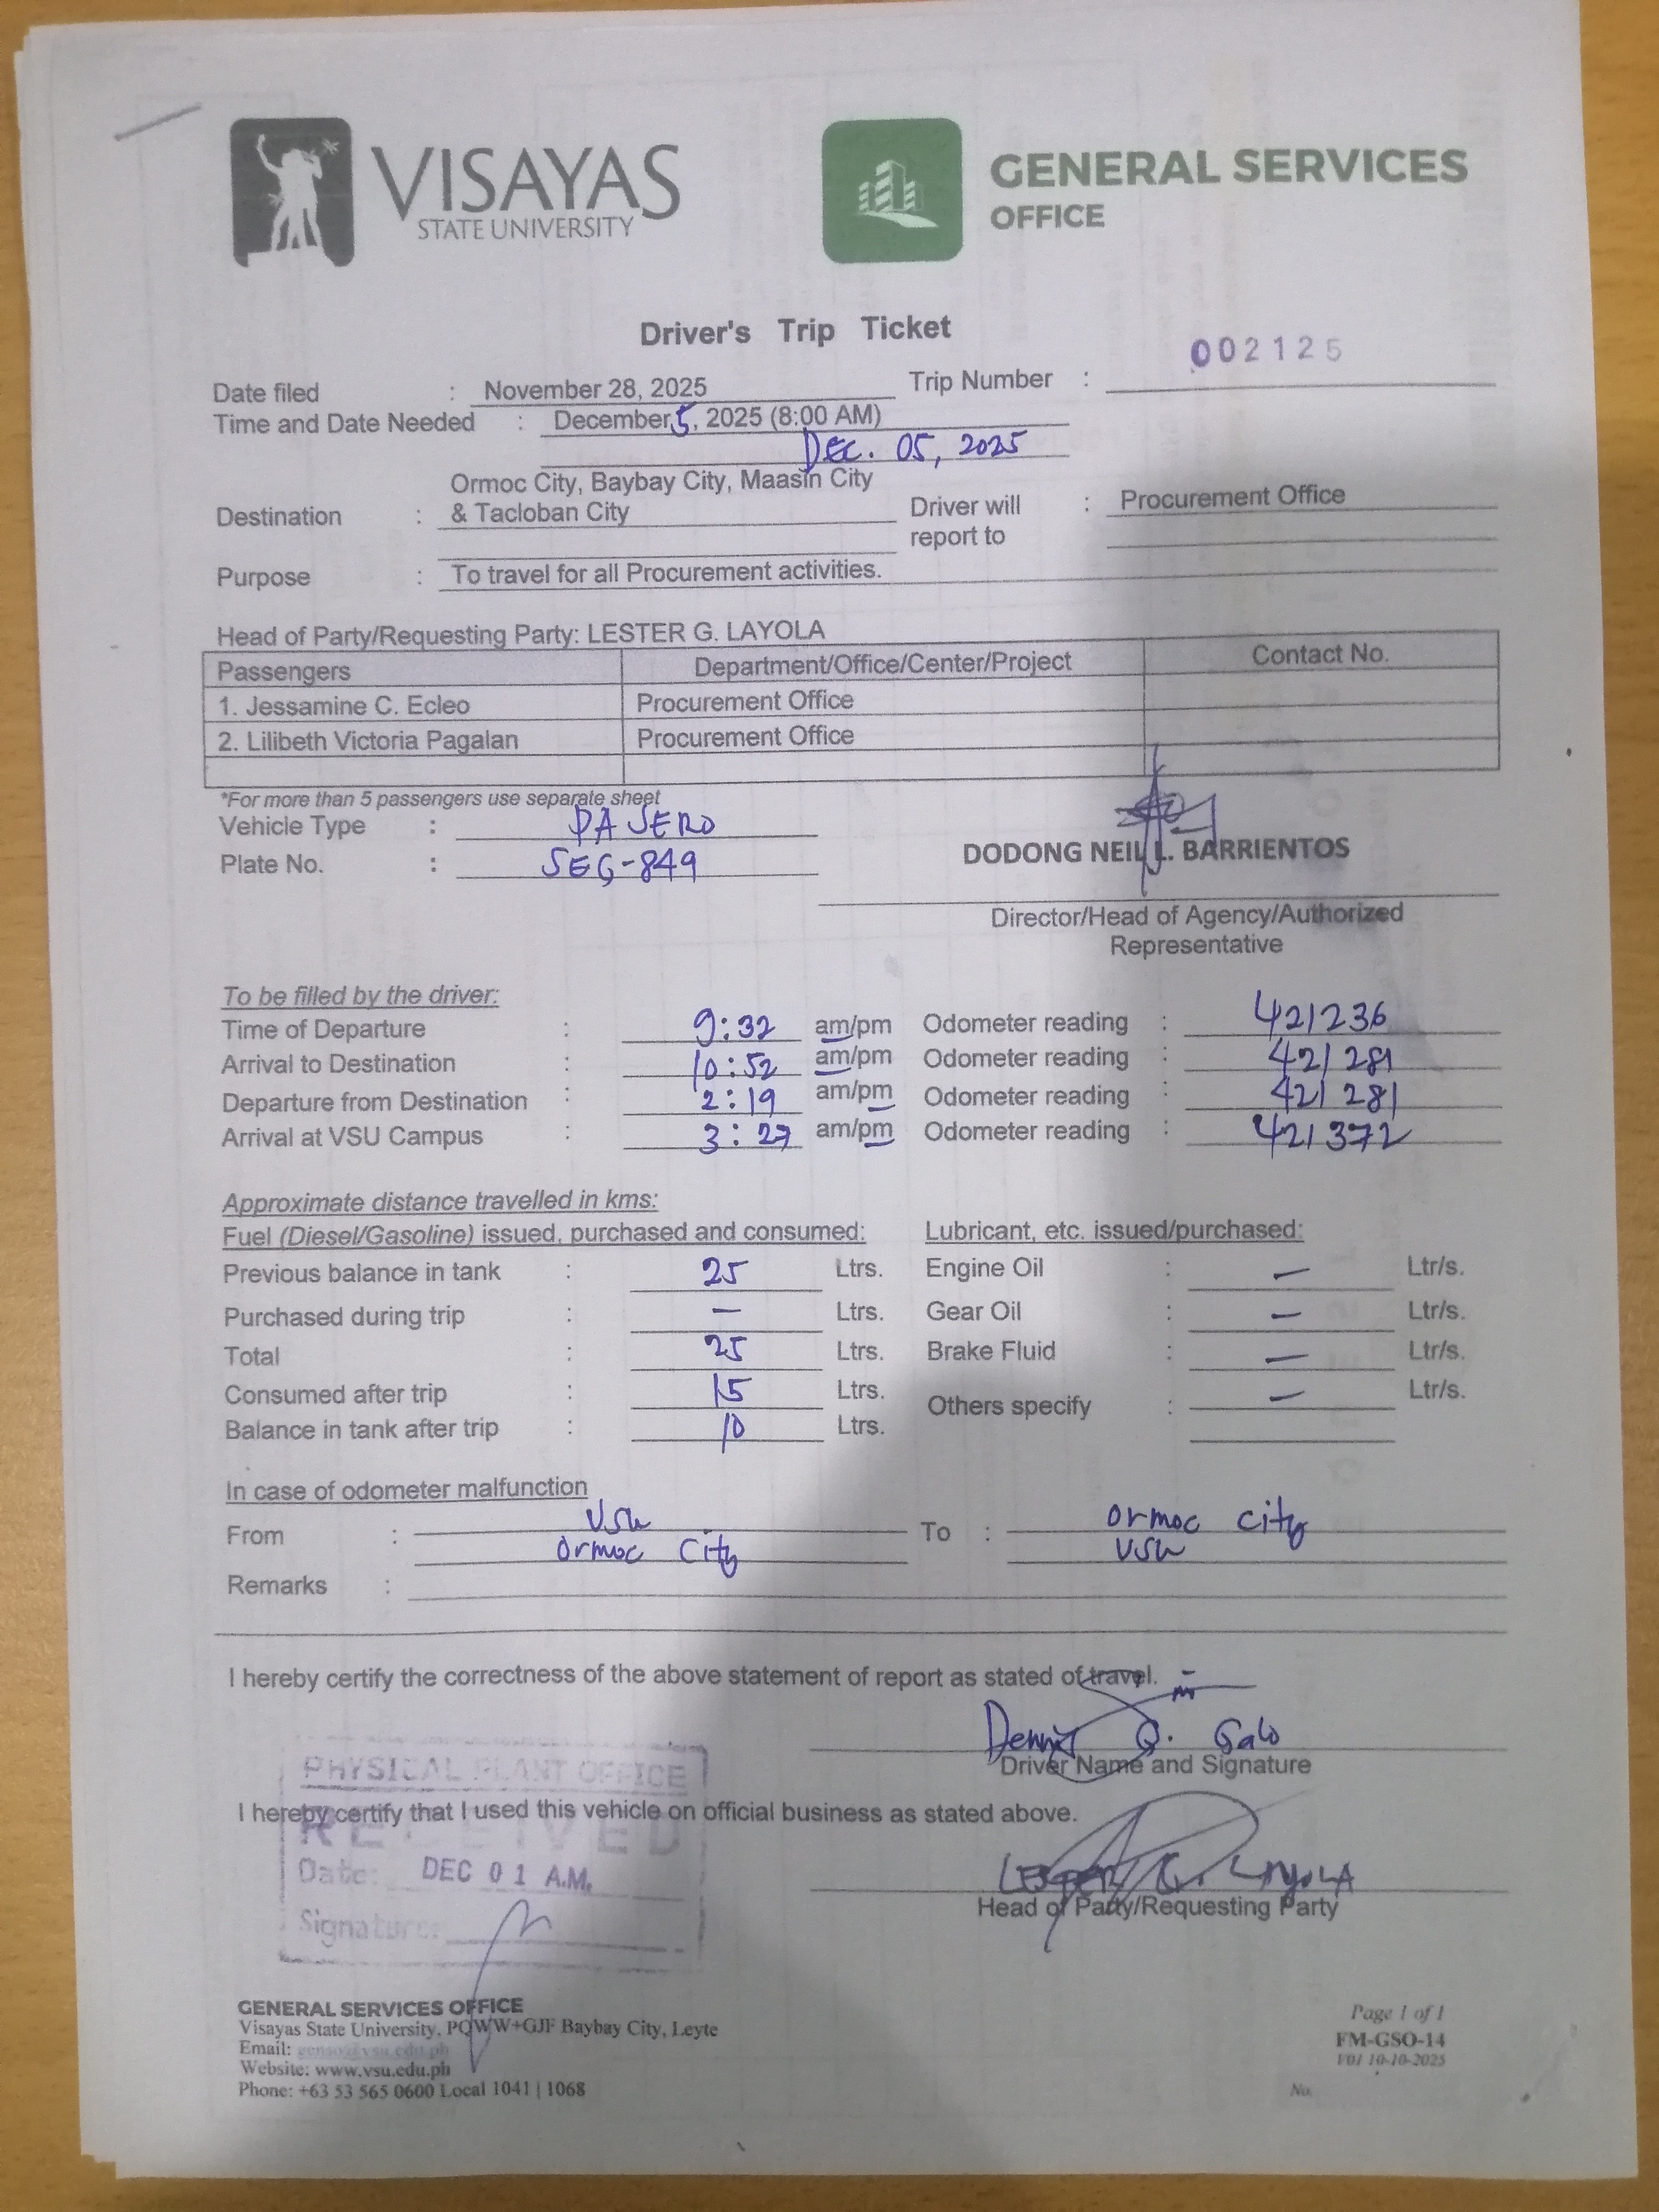 VISAYAS
STATE UNIVERSITY
GENERAL SERVICES
OFFICE
Driver's Trip Ticket
002125
Date filed : November 28, 2025 Trip Number :
Time and Date Needed : December 5, 2025 (8:00 AM)
DEC. 05, 2025
Ormoc City, Baybay City, Maasin City
Destination : & Tacloban City Driver will : Procurement Office
report to
Purpose : To travel for all Procurement activities.
Head of Party/Requesting Party: LESTER G. LAYOLA
Passengers Department/Office/Center/Project Contact No.
1. Jessamine C. Ecleo Procurement Office
2. Lilibeth Victoria Pagalan Procurement Office
*For more than 5 passengers use separate sheet
Vehicle Type : PAJERO
Plate No. : SEG-849
DODONG NEIL L. BARRIENTOS
Director/Head of Agency/Authorized
Representative
To be filled by the driver:
Time of Departure : 9:32 am/pm Odometer reading : 421236
Arrival to Destination : 10:52 am/pm Odometer reading : 421281
Departure from Destination : 2:19 am/pm Odometer reading : 421281
Arrival at VSU Campus : 3:27 am/pm Odometer reading : 421372
Approximate distance travelled in kms:
Fuel (Diesel/Gasoline) issued, purchased and consumed: Lubricant, etc. issued/purchased:
Previous balance in tank : 25 Ltrs. Engine Oil : — Ltr/s.
Purchased during trip : — Ltrs. Gear Oil : — Ltr/s.
Total : 25 Ltrs. Brake Fluid : — Ltr/s.
Consumed after trip : 15 Ltrs. Others specify : — Ltr/s.
Balance in tank after trip : 10 Ltrs.
In case of odometer malfunction
From : VSU To : Ormoc City
Ormoc City VSU
Remarks :
I hereby certify the correctness of the above statement of report as stated of travel.
Dennis Q. Galo
Driver Name and Signature
PHYSICAL PLANT OFFICE
I hereby certify that I used this vehicle on official business as stated above.
RECEIVED
Date: DEC 01 A.M.
LESTER G. LAYOLA
Head of Party/Requesting Party
Signature:
GENERAL SERVICES OFFICE
Visayas State University, PQWW+GJF Baybay City, Leyte
Email:
Website: www.vsu.edu.ph
Phone: +63 53 565 0600 Local 1041 | 1068
Page 1 of 1
FM-GSO-14
V01 10-10-2025
No.